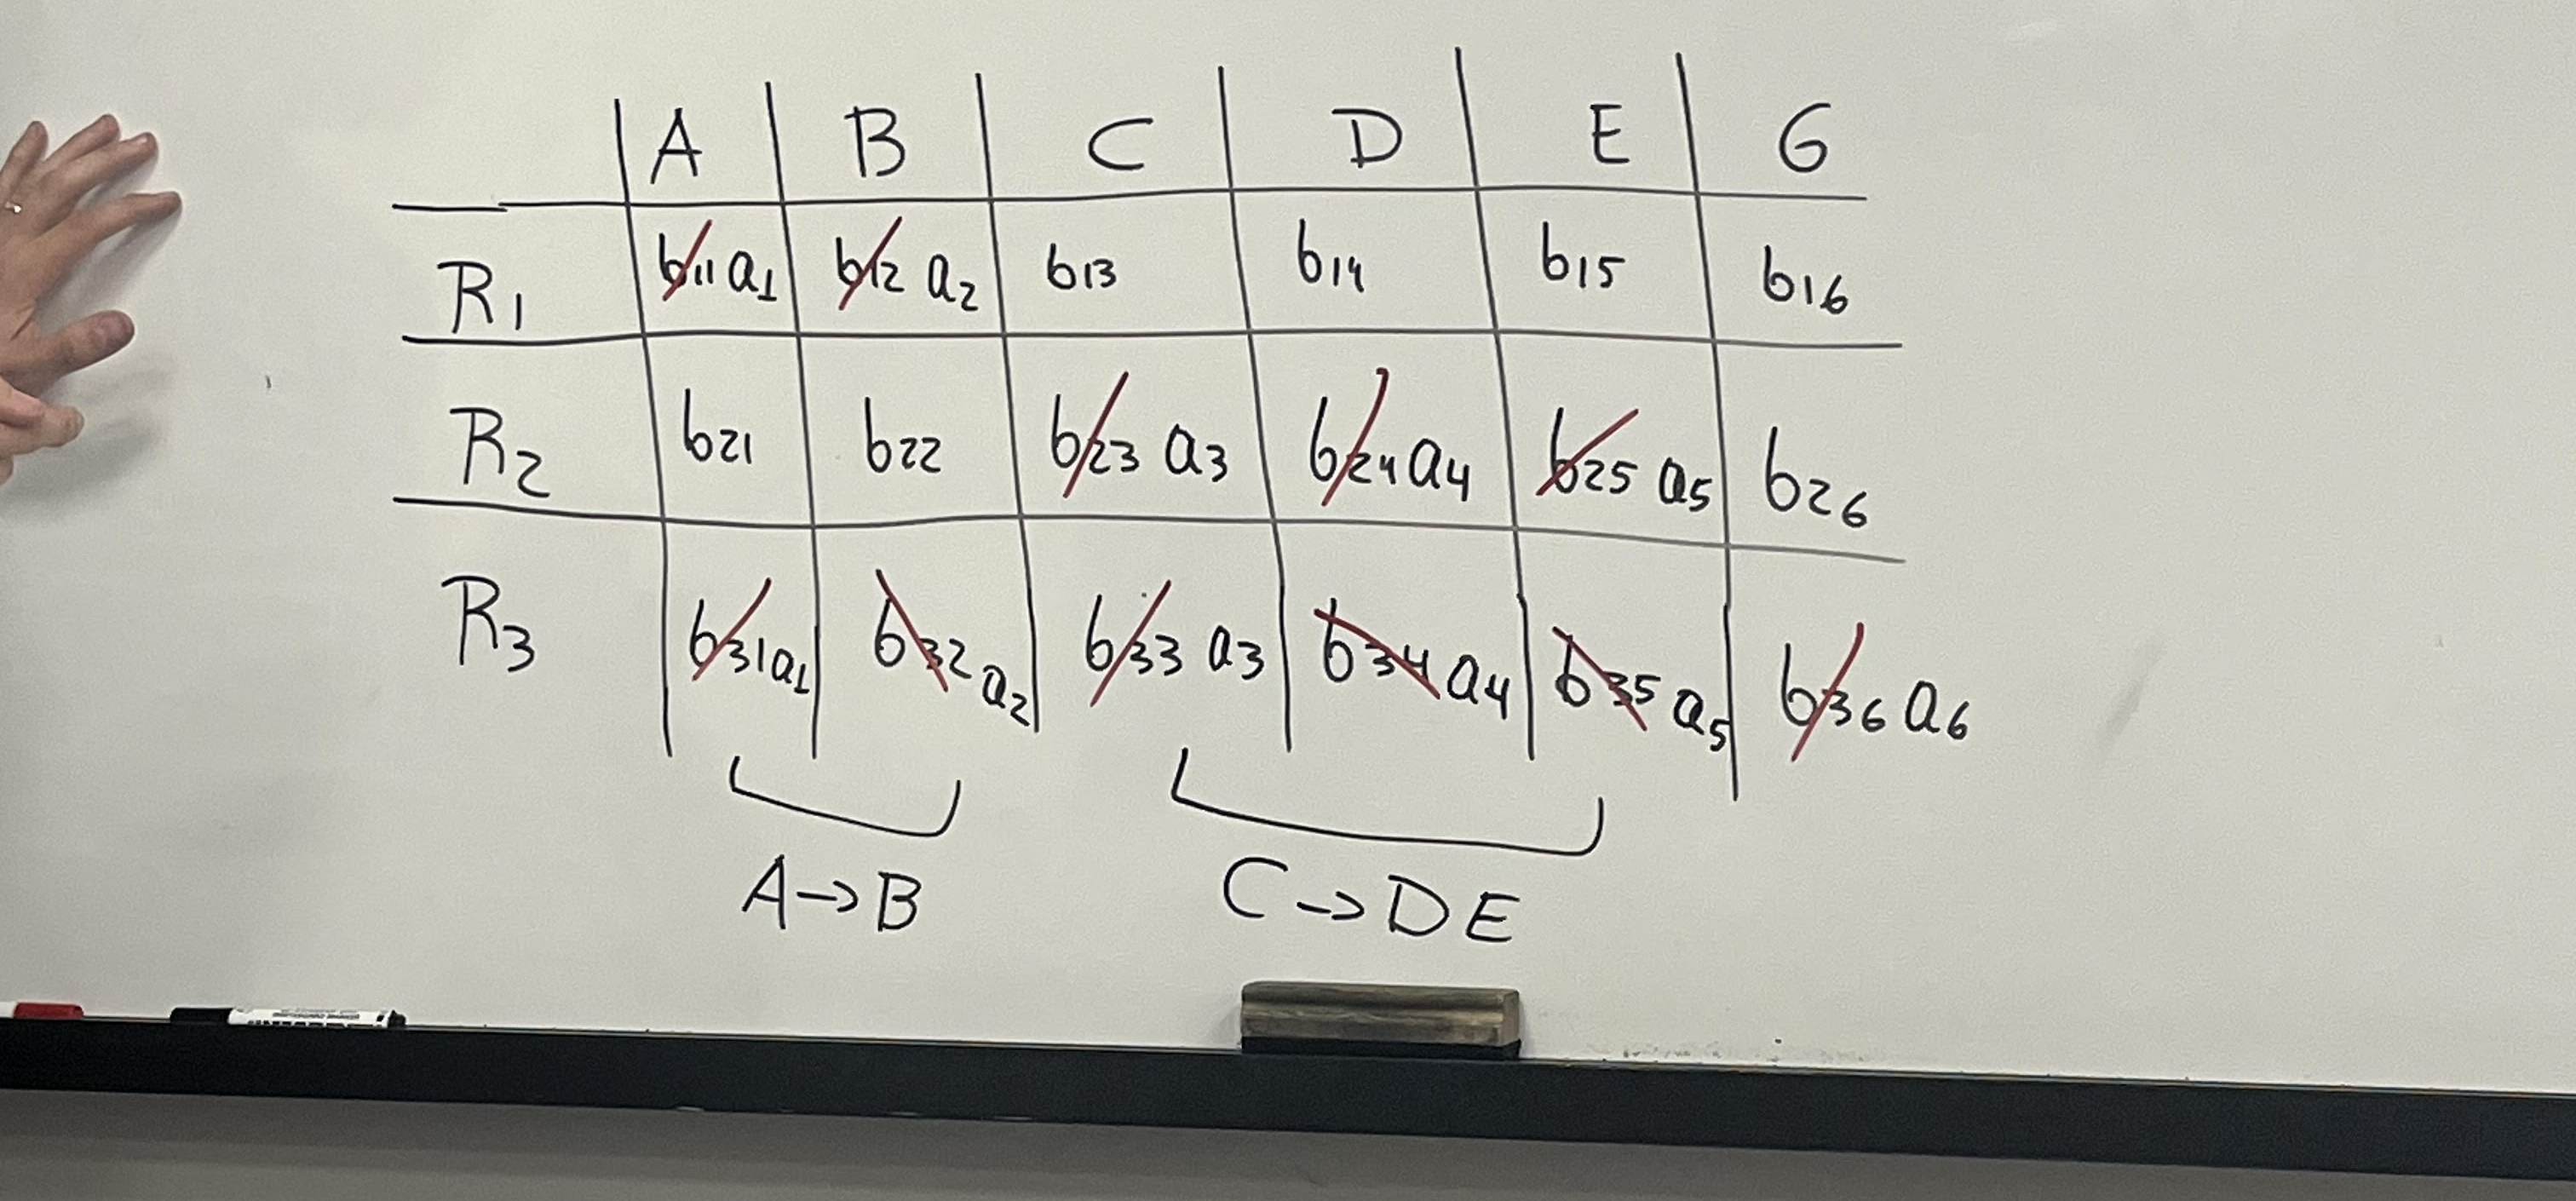 A B C D E G
R1 b11 a1 b12 a2 b13 b14 b15 b16
R2 b21 b22 b23 a3 b24 a4 b25 a5 b26
R3 b31 a1 b32 a2 b33 a3 b34 a4 b35 a5 b36 a6
A→B C→DE